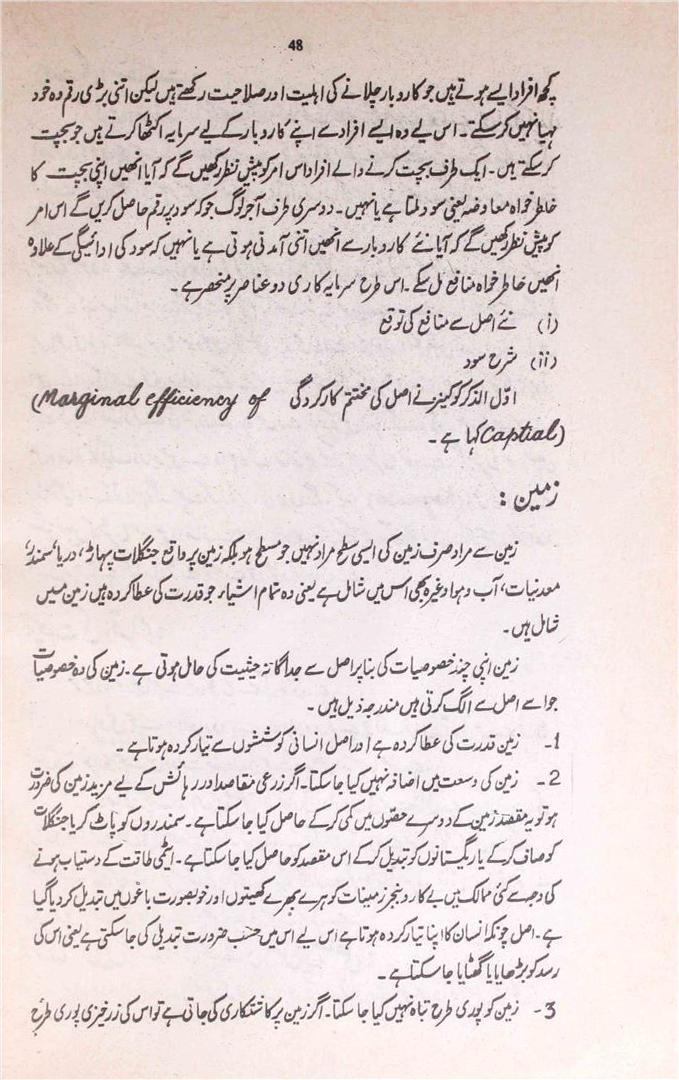 48
کچھ افراد ایسے ہوتے ہیں جو کاروبار چلانے کی اہلیت اور صلاحیت رکھتے ہیں لیکن اتنی بڑی رقم وہ خود
مہیا نہیں کر سکتے۔ اس لیے وہ ایسے افراد سے اپنے کاروبار کے لیے سرمایہ اکٹھا کرتے ہیں جو بچت
کر سکتے ہیں۔ ایک طرف بچت کرنے والے افراد اس امر کو پیش نظر رکھیں گے کہ آیا انھیں اپنی بچت کا
خاطر خواہ معاوضہ یعنی سود ملتا ہے یا نہیں۔ دوسری طرف آجر لوگ جو کہ سود پر رقم حاصل کریں گے اس امر
کو پیش نظر رکھیں گے کہ آیا نئے کاروبار سے انھیں اتنی آمدنی ہوتی ہے یا نہیں کہ سود کی ادائیگی کے علاوہ
انھیں خاطر خواہ منافع مل سکے۔ اس طرح سرمایہ کاری دو عناصر پر منحصر ہے۔
(i) نئے اصل سے منافع کی توقع
(ii) شرح سود
اوّل الذکر کو کینز نے اصل کی مختتم کارکردگی (Marginal efficiency of
Captial) کہا ہے۔
زمین :
زمین سے مراد صرف زمین کی ایسی سطح مراد نہیں جو مسطح ہو بلکہ زمین پر واقع جنگلات پہاڑ، دریا، سمندر،
معدنیات، آب و ہوا وغیرہ بھی اس میں شامل ہے یعنی وہ تمام اشیاء جو قدرت کی عطا کردہ ہیں زمین میں
شامل ہیں۔
زمین اپنی چند خصوصیات کی بنا پر اصل سے جداگانہ حیثیت کی حامل ہوتی ہے۔ زمین کی وہ خصوصیات
جو اسے اصل سے الگ کرتی ہیں مندرجہ ذیل ہیں۔
1- زمین قدرت کی عطا کردہ ہے اور اصل انسانی کوششوں سے تیار کردہ ہوتا ہے۔
2- زمین کی وسعت میں اضافہ نہیں کیا جا سکتا۔ اگر زرعی مقاصد اور رہائش کے لیے مزید زمین کی ضرورت
ہو تو یہ مقصد زمین کے دوسرے حصّوں میں کمی کر کے حاصل کیا جا سکتا ہے۔ سمندروں کو پاٹ کر یا جنگلات
کو صاف کر کے یا ریگستانوں کو تبدیل کر کے اس مقصد کو حاصل کیا جا سکتا ہے۔ ایٹمی طاقت کے دستیاب ہونے
کی وجہ سے کئی ممالک میں بے کار و بنجر زمینات کو ہرے بھرے کھیتوں اور خوبصورت باغوں میں تبدیل کر دیا گیا
ہے۔ اصل چونکہ انسان کا اپنا تیار کردہ ہوتا ہے اس لیے اس میں حسب ضرورت تبدیلی کی جا سکتی ہے یعنی اس کی
رسد کو بڑھایا یا گھٹایا جا سکتا ہے۔
3- زمین کو پوری طرح تباہ نہیں کیا جا سکتا۔ اگر زمین پر کاشتکاری کی جاتی ہے تو اس کی زرخیزی پوری طرح